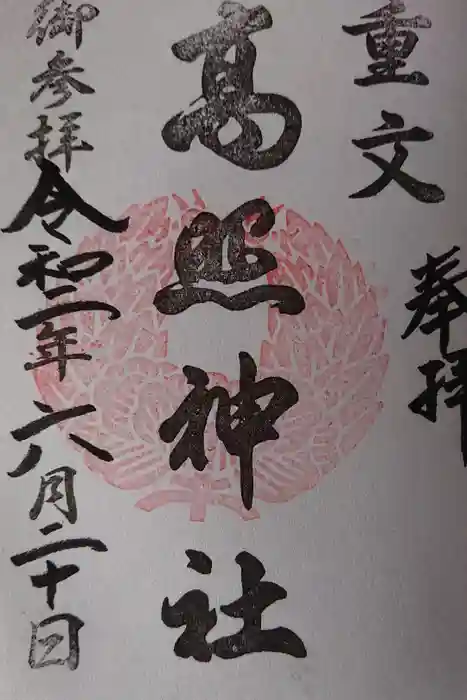 奉拝
重文
高照神社
御参拝
令和二年六月二十日